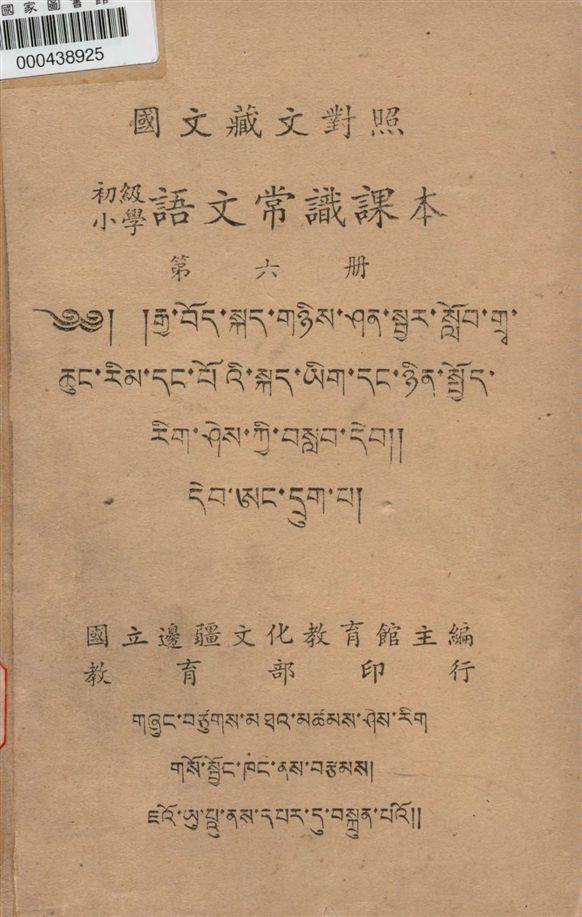 國家圖書館
000438925
國文藏文對照
初級小學語文常識課本
第六册
༄༅། །རྒྱ་བོད་སྐད་གཉིས་ཤན་སྦྱར་སློབ་གྲྭ་
ཆུང་རིམ་དང་པོ་འི་སྐད་ཡིག་དང་ཉིན་སྤྱོད་
རིག་ཤེས་ཀྱི་བསླབ་དེབ།།
དེབ་ཨང་དྲུག་པ།
國立邊疆文化教育館主編
教育部印行
གཞུང་བཙུགས་མཐའ་མཚམས་ཤེས་རིག
གསོ་སྦྱོང་ཁང་ནས་བརྩམས།
ཇའོ་ཡུ་པུའུ་ནས་དཔར་དུ་བསྐྲུན་པའོ།།